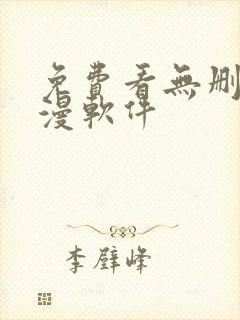 免費看無刪
漫軟件
李璧峰